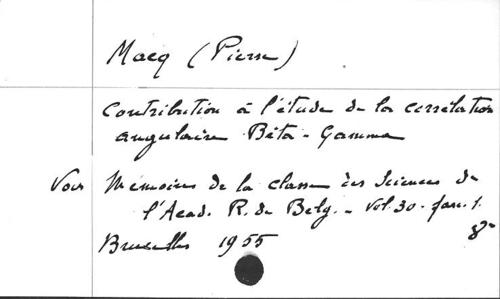 Macq (Pierre)
Contribution à l'étude de la corrélation
angulaire Bêta - Gamma
Voir Mémoires de la classe des Sciences de
l'Acad. R. de Belg. - Vol. 30 - fasc. 1.
Bruxelles 1955 8°